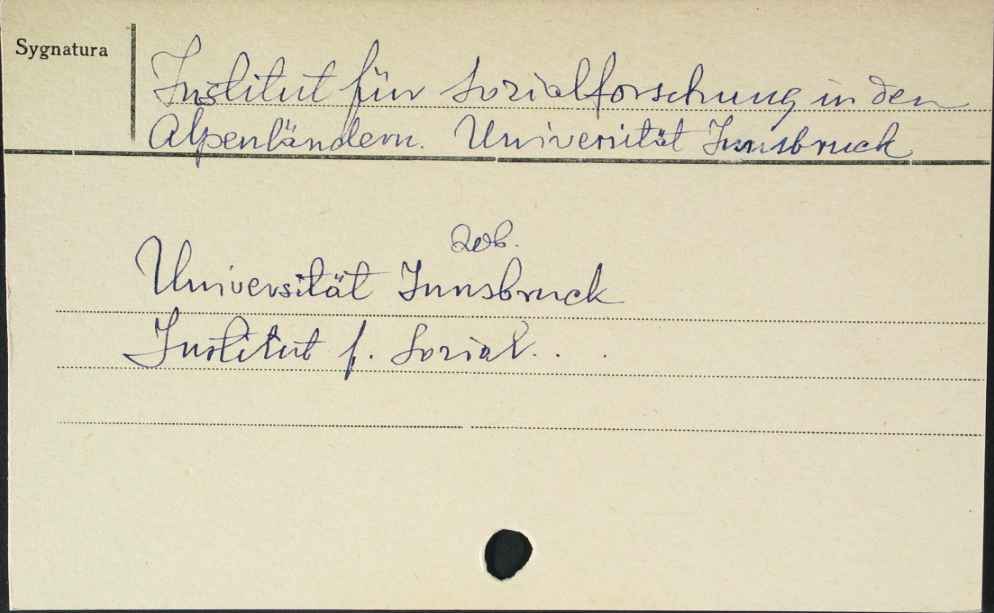 Sygnatura
Institut für Sozialforschung in den
Alpenländern. Universität Innsbruck
zob.
Universität Innsbruck
Institut f. Sozial. . .